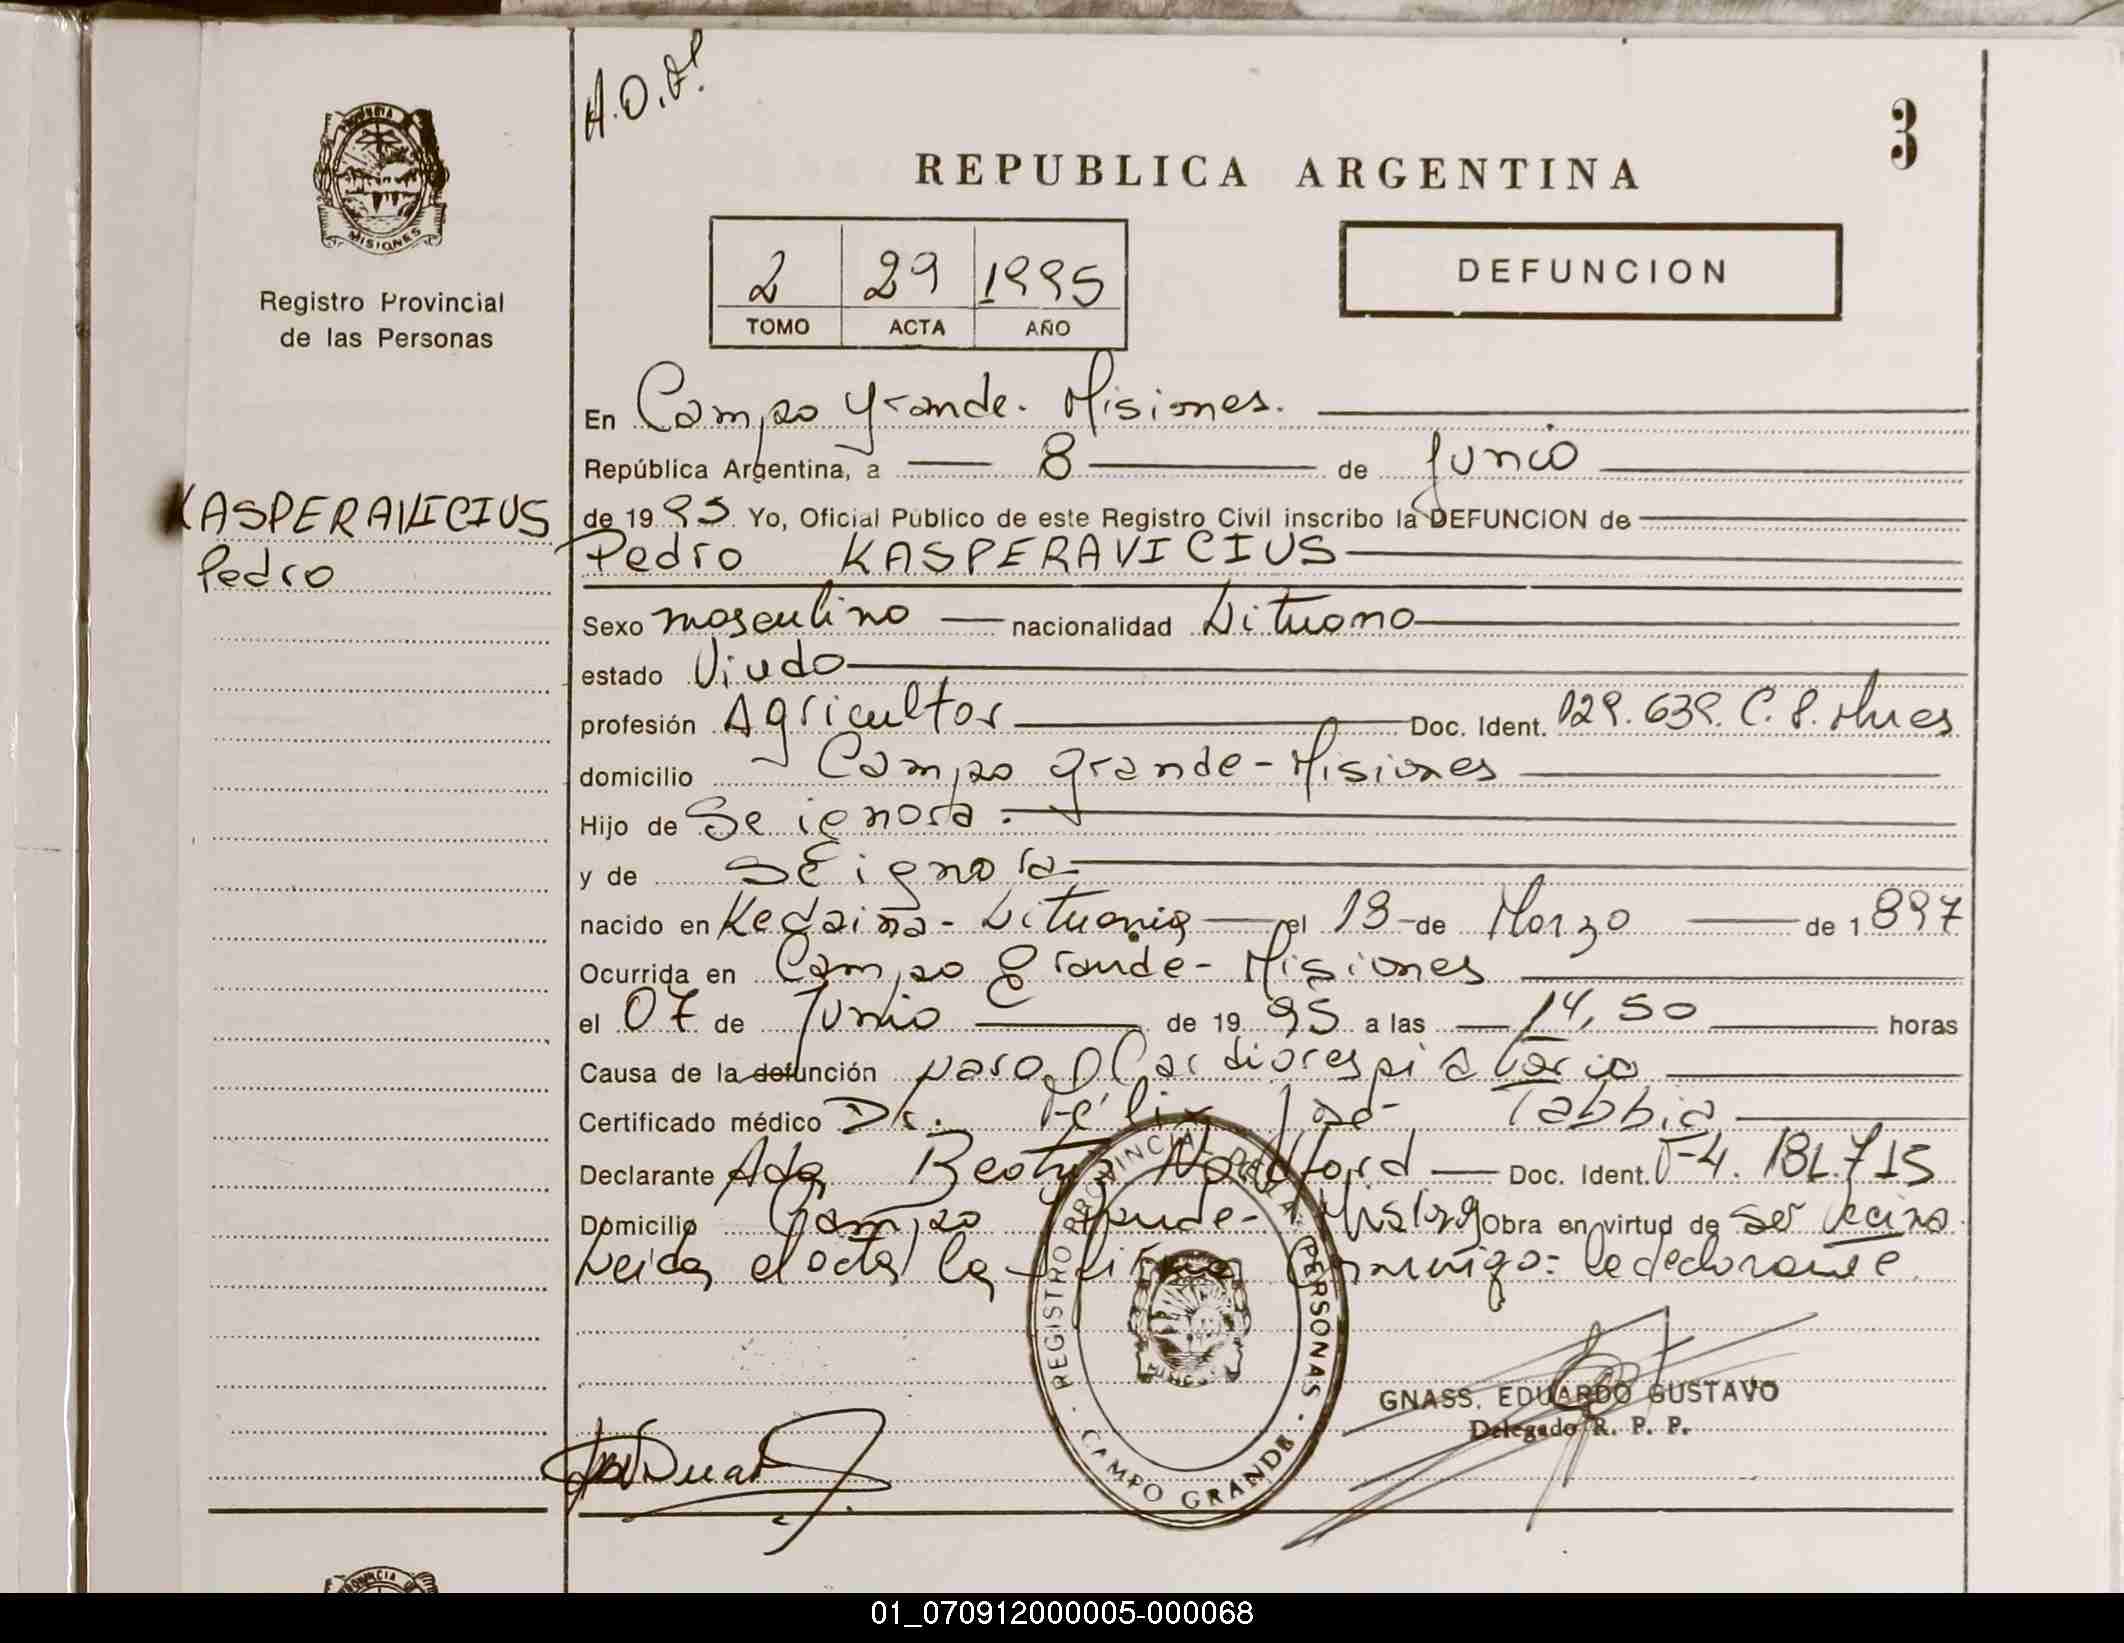 A.O.P.
3
PROVINCIA
MISIONES
Registro Provincial
de las Personas
REPUBLICA ARGENTINA
2 29 1995
TOMO ACTA AÑO
DEFUNCION
En Campo Grande. Misiones.
República Argentina, a 8 de Junio
KASPERAVICIUS
Pedro
de 19 95 Yo, Oficial Público de este Registro Civil inscribo la DEFUNCION de
Pedro KASPERAVICIUS
Sexo masculino nacionalidad Lituano
estado Viudo
profesión Agricultor Doc. Ident. 129.639. C.P. Mnes
domicilio Campo Grande - Misiones
Hijo de Se ignora.
y de SE ignora
nacido en Kedaina - Lituania el 19 de Marzo de 1 897
Ocurrida en Campo Grande - Misiones
el 07 de Junio de 19 95 a las 14,50 horas
Causa de la defunción paro Cardiorespiratorio
Certificado médico Dr. Félix José Tabbia
Declarante Ada Beatriz Doc. Ident. F-4.181.715
Domicilio Campo Grande - Obra en virtud de ser vecina.
Leida el acta la firma conmigo: la declarante
REGISTRO PROVINCIAL DE LAS PERSONAS
· CAMPO GRANDE ·
GNASS, EDUARDO GUSTAVO
Delegado R. P. P.
PROVINCIA
01_070912000005-000068